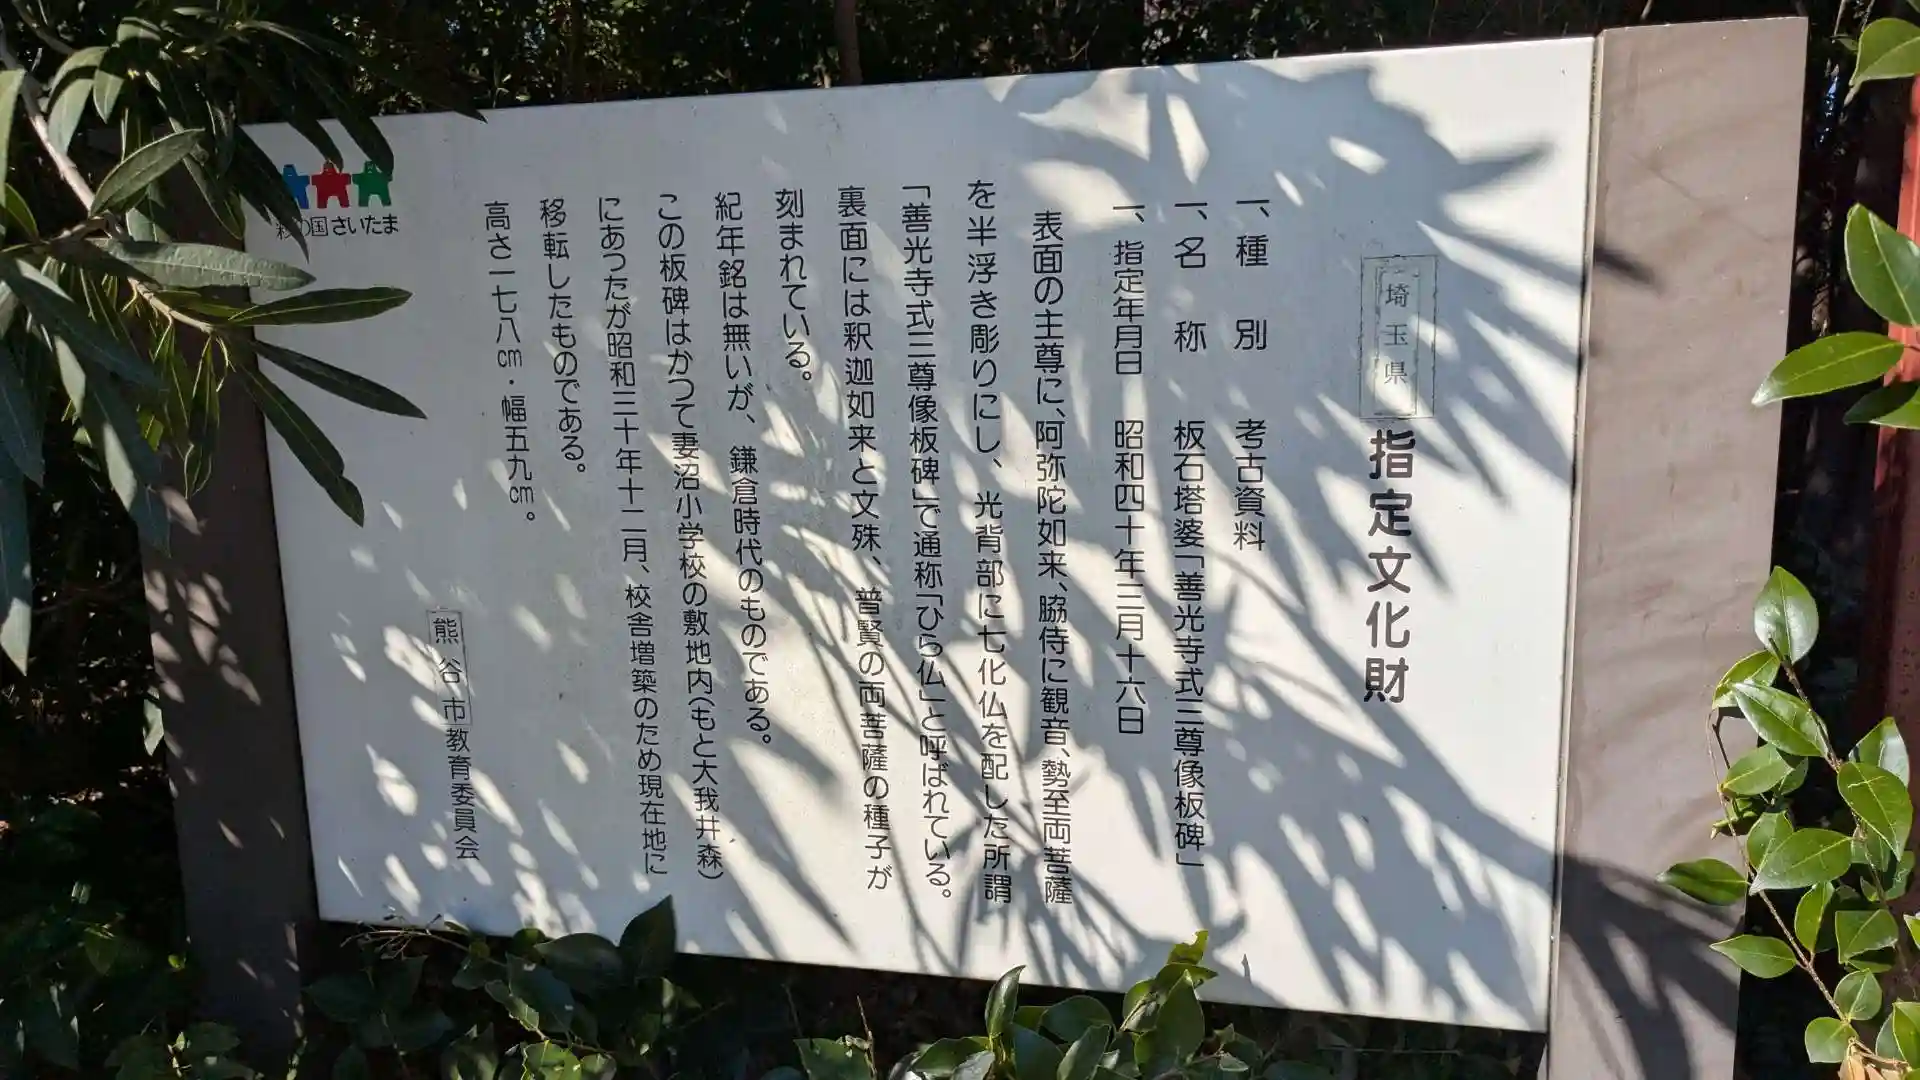 埼玉県指定文化財
一、種別 考古資料
一、名称 板石塔婆「善光寺式三尊像板碑」
一、指定年月日 昭和四十年三月十六日
表面の主尊に、阿弥陀如来、脇侍に観音、勢至両菩薩
を半浮き彫りにし、光背部に七化仏を配した所謂
「善光寺式三尊像板碑」で通称「ひら仏」と呼ばれている。
裏面には釈迦如来と文殊、普賢の両菩薩の種子が
刻まれている。
紀年銘は無いが、鎌倉時代のものである。
この板碑はかつて妻沼小学校の敷地内(もと大我井森)
にあったが昭和三十年十二月、校舎増築のため現在地に
移転したものである。
高さ一七八cm・幅五九cm。
熊谷市教育委員会
彩の国さいたま